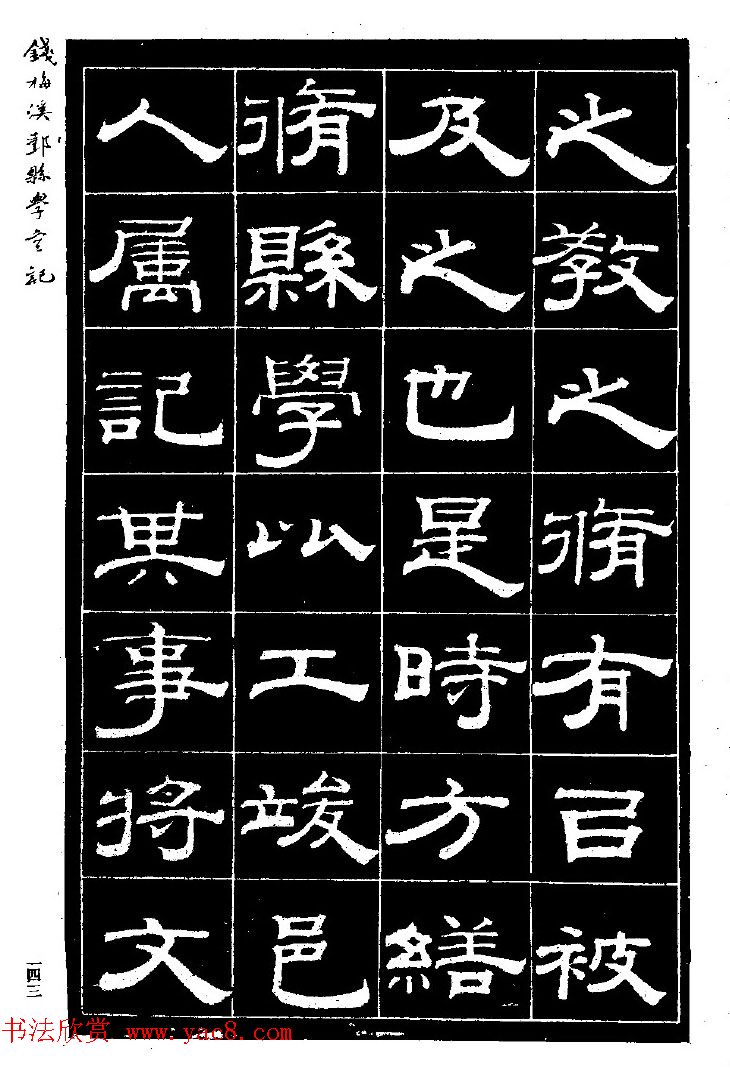 之教之脩有㠯被
及之也是時方繕
脩縣學以工竣邑
人属記其事將文
錢梅溪鄞縣學宮記
一四三
书法欣赏 www.yac8.com